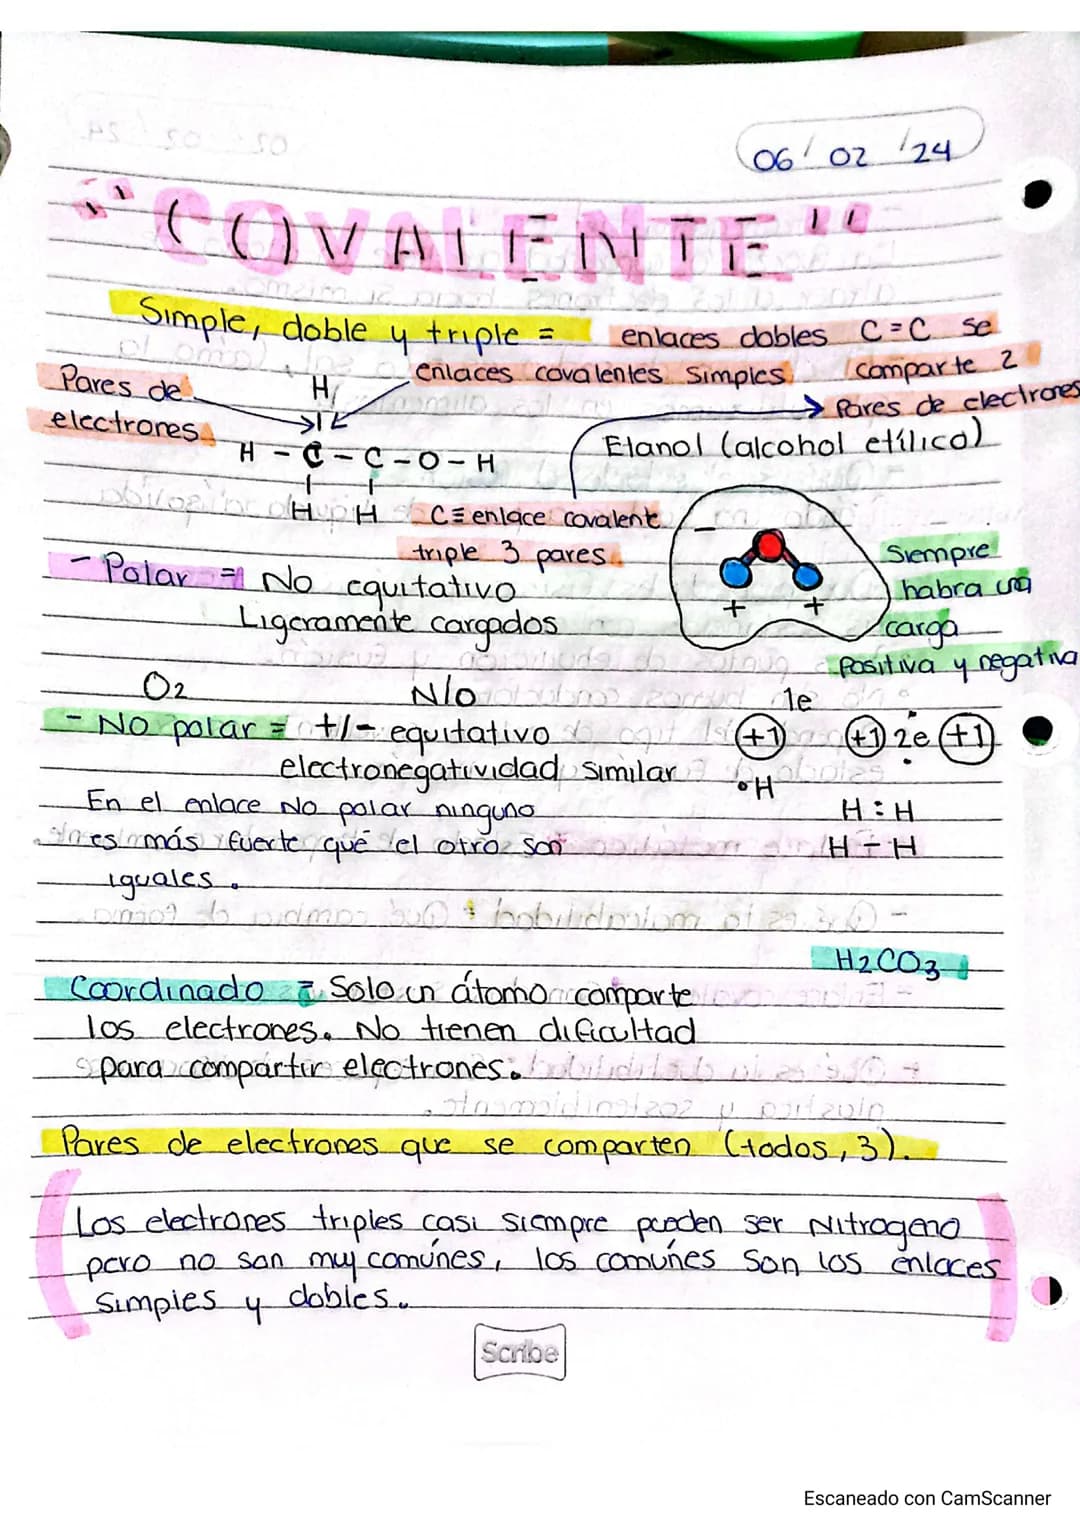 06/02/24
"COVALENTE"
Simple, doble y triple =
enlaces dobles C=C se
comparte 2
Pares de electrones
enlaces covalentes simples
Pares de
electrones
H
H - C - C - O - H
H H
Etanol (alcohol etílico)
C≡ enlace covalente
triple 3 pares
- +  +
Siempre
habra una
carga
positiva y negativa
- Polar = No equitativo
Ligeramente cargados
O2 N/o
- No polar = +/- equitativo
electronegatividad similar
1e
+1 +1 2e +1
°H
H : H
H - H
En el enlace No polar ninguno
es más fuerte que el otro son
iguales.
H2CO3
Coordinado = Solo un átomo comparte
los electrones. No tienen dificultad
para compartir electrones.
Pares de electrones que se comparten (todos, 3).
Los electrones triples casi siempre pueden ser Nitrogeno
pero no son muy comúnes, los comúnes son los enlaces
simples y dobles.
Scribe
Escaneado con CamScanner